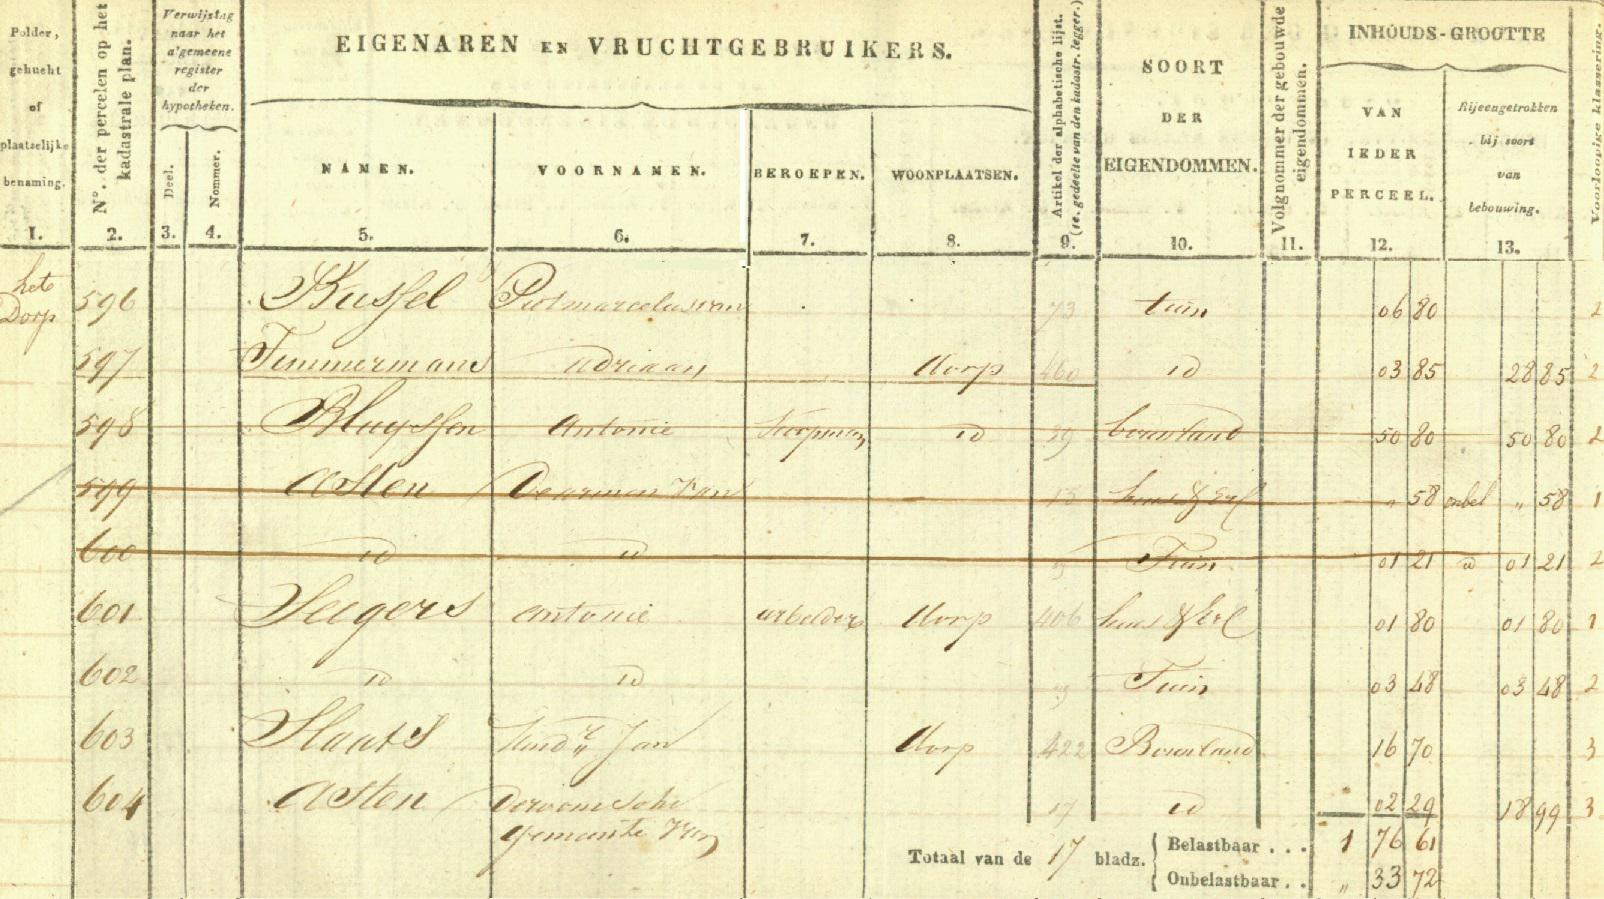 Polder, gehucht of plaatselijke benaming.
N°. der percelen op het kadastrale plan.
Verwijstag naar het algemeene register der hypotheken.
Deel.
Nommer.
EIGENAREN EN VRUCHTGEBRUIKERS.
NAMEN.
VOORNAMEN.
BEROEPEN.
WOONPLAATSEN.
Artikel der alphabetische lijst. (1e. gedeelte van den kadastr. legger.)
SOORT DER EIGENDOMMEN.
Volgnommer der gebouwde eigendommen.
INHOUDS-GROOTTE
VAN IEDER PERCEEL.
Bijeengetrokken bij soort van bebouwing.
Voorloopige klassering.
1. 2. 3. 4. 5. 6. 7. 8. 9. 10. 11. 12. 13.
het Dorp 596 Kussel 73 tuin 06 80 2
597 Timmermans Adriaan dorp 460 id 03 85 28 85 2
598 Bluyssen Antonie Koopman id 39 bouwland 50 80 50 80 2
599 Asten De armen van 13 huis & Erf " 58 onbel " 58 1
600 id id Tuin 01 21 id 01 21 2
601 Seegers antonie arbeider dorp 406 huis & Erf 01 80 01 80 1
602 id id Tuin 03 48 03 48 2
603 Slaats Jan dorp 422 Bouwland 16 70 3
604 Asten 17 id 02 29 18 99 3
gemeente van
Totaal van de 17 bladz. Belastbaar . . . 1 76 61
Onbelastbaar . . " 33 72